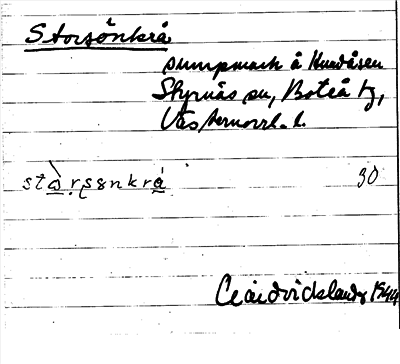 Storsönkrå
sumpmark å Hundåsen
Styrnäs sn, Boteå tg,
Västernorrl. l.
stȧ̀rşsnkrǻ 30
Ceāidvidslandz 1944